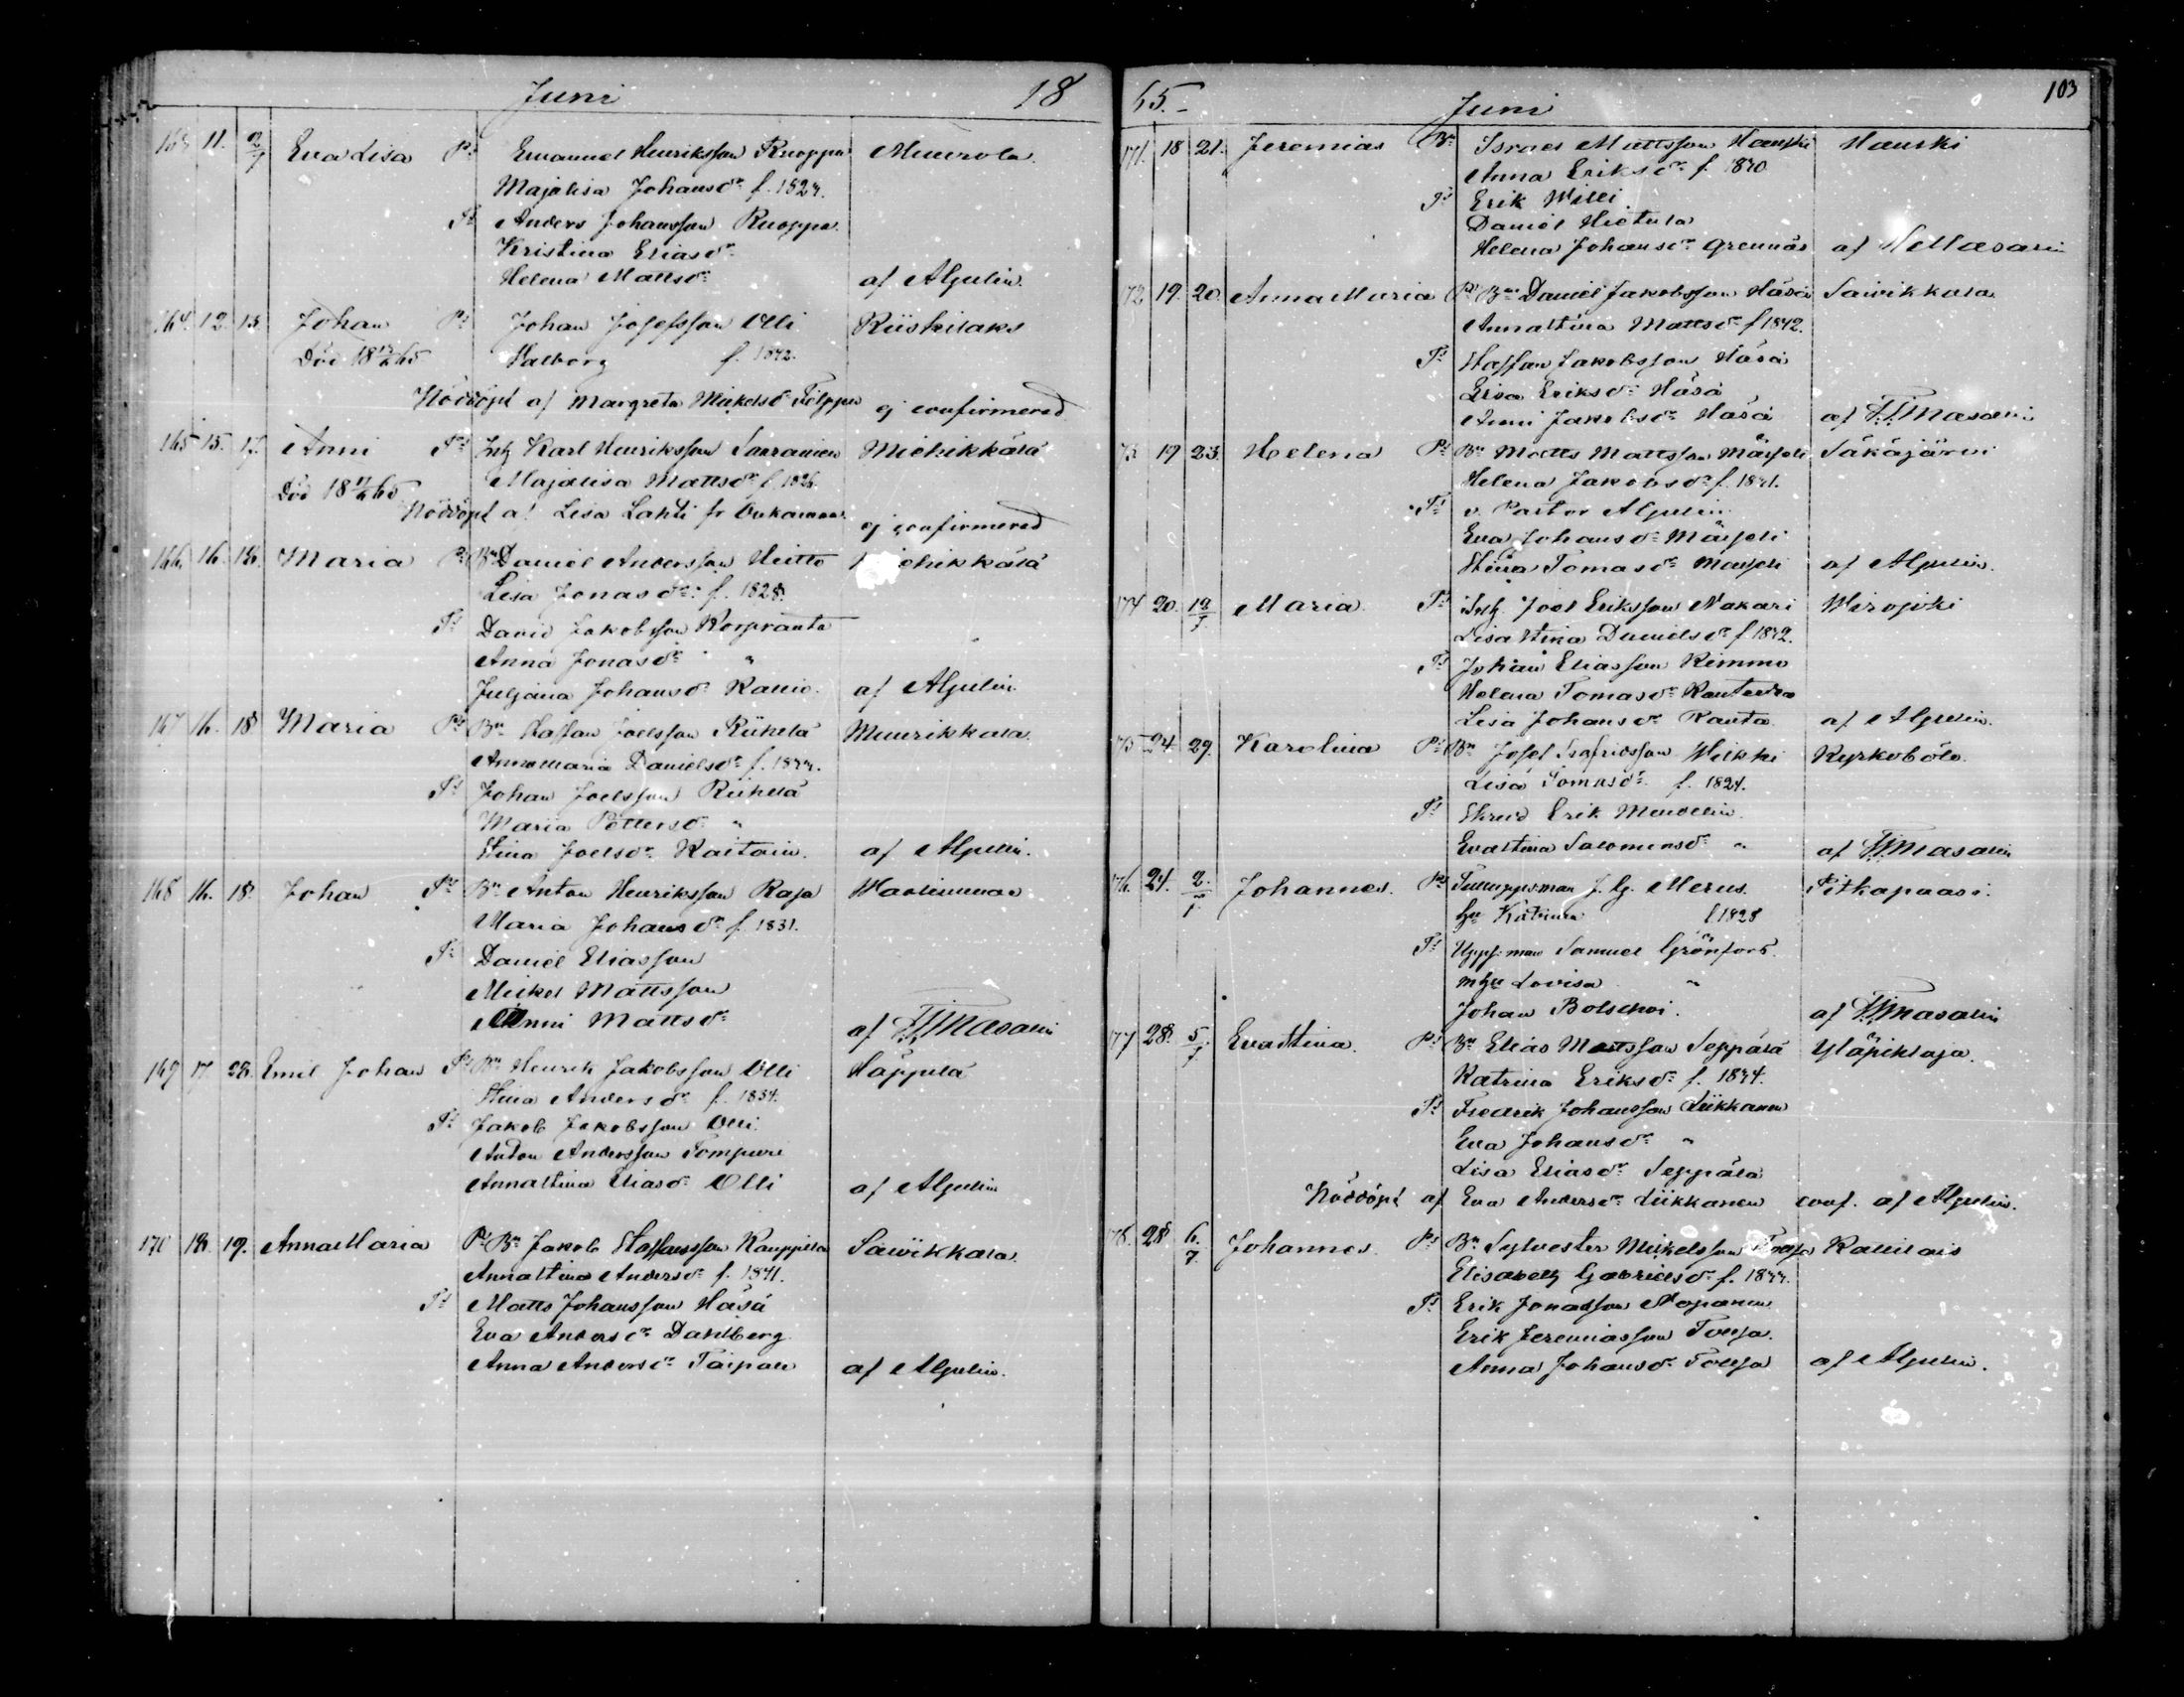 Juni 18
163 11. 2/7 Eva Lisa Ps Emanuel Henriksson Ruoppa Muurola.
Majalisa Johansdr f. 1824.
Ts Anders Johansson Ruoppa.
Kristina Eliasdr
Helena Mattsdr af Alpulin.
164. 12. 13. Johan Ps Johan Josefsson Olli Riiskilaks
Död 65 Walborg f. 1842.
Nöddöpt af Margreta Mickelsd Filppu ej confirmered
165 15. 17. Anni Ps Inh Karl Henriksson Saarainen Miehikkälä
Död 65 Majalisa Mattsdr f. 1826.
Nöddöpt af Lisa Lahti fr ej confirmered
166. 16. 18. Maria Ps Bn Daniel Andersson Heitto Miehikkälä
Lisa Jonasdr f. 1828.
Ts David Jakobsson Korpranta
Anna Jonasdr "
Juljana Johansdr Kallio. af Alpulin.
167 16. 18 Maria Ps Bn Staffan Joelsson Riihelä Muurikkala.
Annamaria Danielsdr f. 1844.
Ts Johan Joelsson Riihelä
Maria Pettersdr "
Stina Joelsdr Kaitain. af Alpulin.
168 16. 18. Johan Ps Bn Anton Henriksson Raja Waalimaa
Maria Johansdr f. 1831.
Ts Daniel Eliasson
Mickel Mattsson
Anni Mattsdr af Masalin
169 17. 28. Emil Johan Ps Bn Henrik Jakobsson Olli Häppilä
Stina Andersdr f. 1834.
Ts Jakob Jakobsson Olli.
Anton Andersson Tompuri
Annastina Eliasdr Olli af Alpulin
170 18. 19. Anna Maria Ps Bn Jakob Staffansson Kauppila Säivikkälä.
Annastina Andersdr f. 1841.
Ts Matts Johansson Häsä
Eva Andersdr Dahlberg
Anna Andersdr Taipale af Alpulin.
65. Juni 103
171. 18 21. Jeremias Bn Israel Mattsson Hanski Hanski
Anna Eriksdr f. 1840
Ts Erik Willi
Daniel Hietula
Helena Johansdr Grennäs af Masalin
172 19. 20. Anna Maria Ps Bn Daniel Jakobsson Häsä Säivikkälä
Annastina Mattsdr f 1842.
Ts Staffan Jakobsson Häsä
Lisa Eriksdr Häsä
Anni Jakobsdr Häsä af Masalin
173 19 23 Helena Ps Bn Matts Mattsson Säkäjärvi
Helena Jakobsdr f. 1841.
Ts v. Pastor Alpulin
Eva Johansdr
Stina Tomasdr af Alpulin.
174 20. Maria Ps Inh. Joel Eriksson Nakari Wirojoki
Lisa Stina Danielsdr f 1842.
Ts Johan Eliasson Kimmo
Helena Tomasdr
Lisa Johansdr Ranta af Alpulin.
175 24. 29. Karolina Ps Bn Josef Wilkki Kyrkoböle.
Lisa Tomasdr f. 1824.
Ts Skred Erik Mendelin.
Evastina Salomonsdr " af Masalin
176. 24. 2/7. Johannes. Ps J. G. Merus. Pitkäpaasi.
hu Katrina f 1828
Ts Samuel Grönfors.
mhu Lovisa "
Johan Bolschoi. af Masalin
177 28. 5/7 Evastina. Ps Bn Elias Mattsson Seppälä Yläpihlaja.
Katrina Eriksdr f. 1844.
Ts Fredrik Johansson Liikkanen
Eva Johansdr "
Lisa Eliasdr Seppälä
Nöddöpt af Eva Andersdr Liikkanen conf. af Alpulin.
178. 28 6/7. Johannes. Ps Bn Sylvester Mickelsson
Elisabeth Gabrielsdr f. 1844.
Ts Erik Jonasson Nopanen
Erik Jeremiasson
Anna Johansdr af Alpulin.